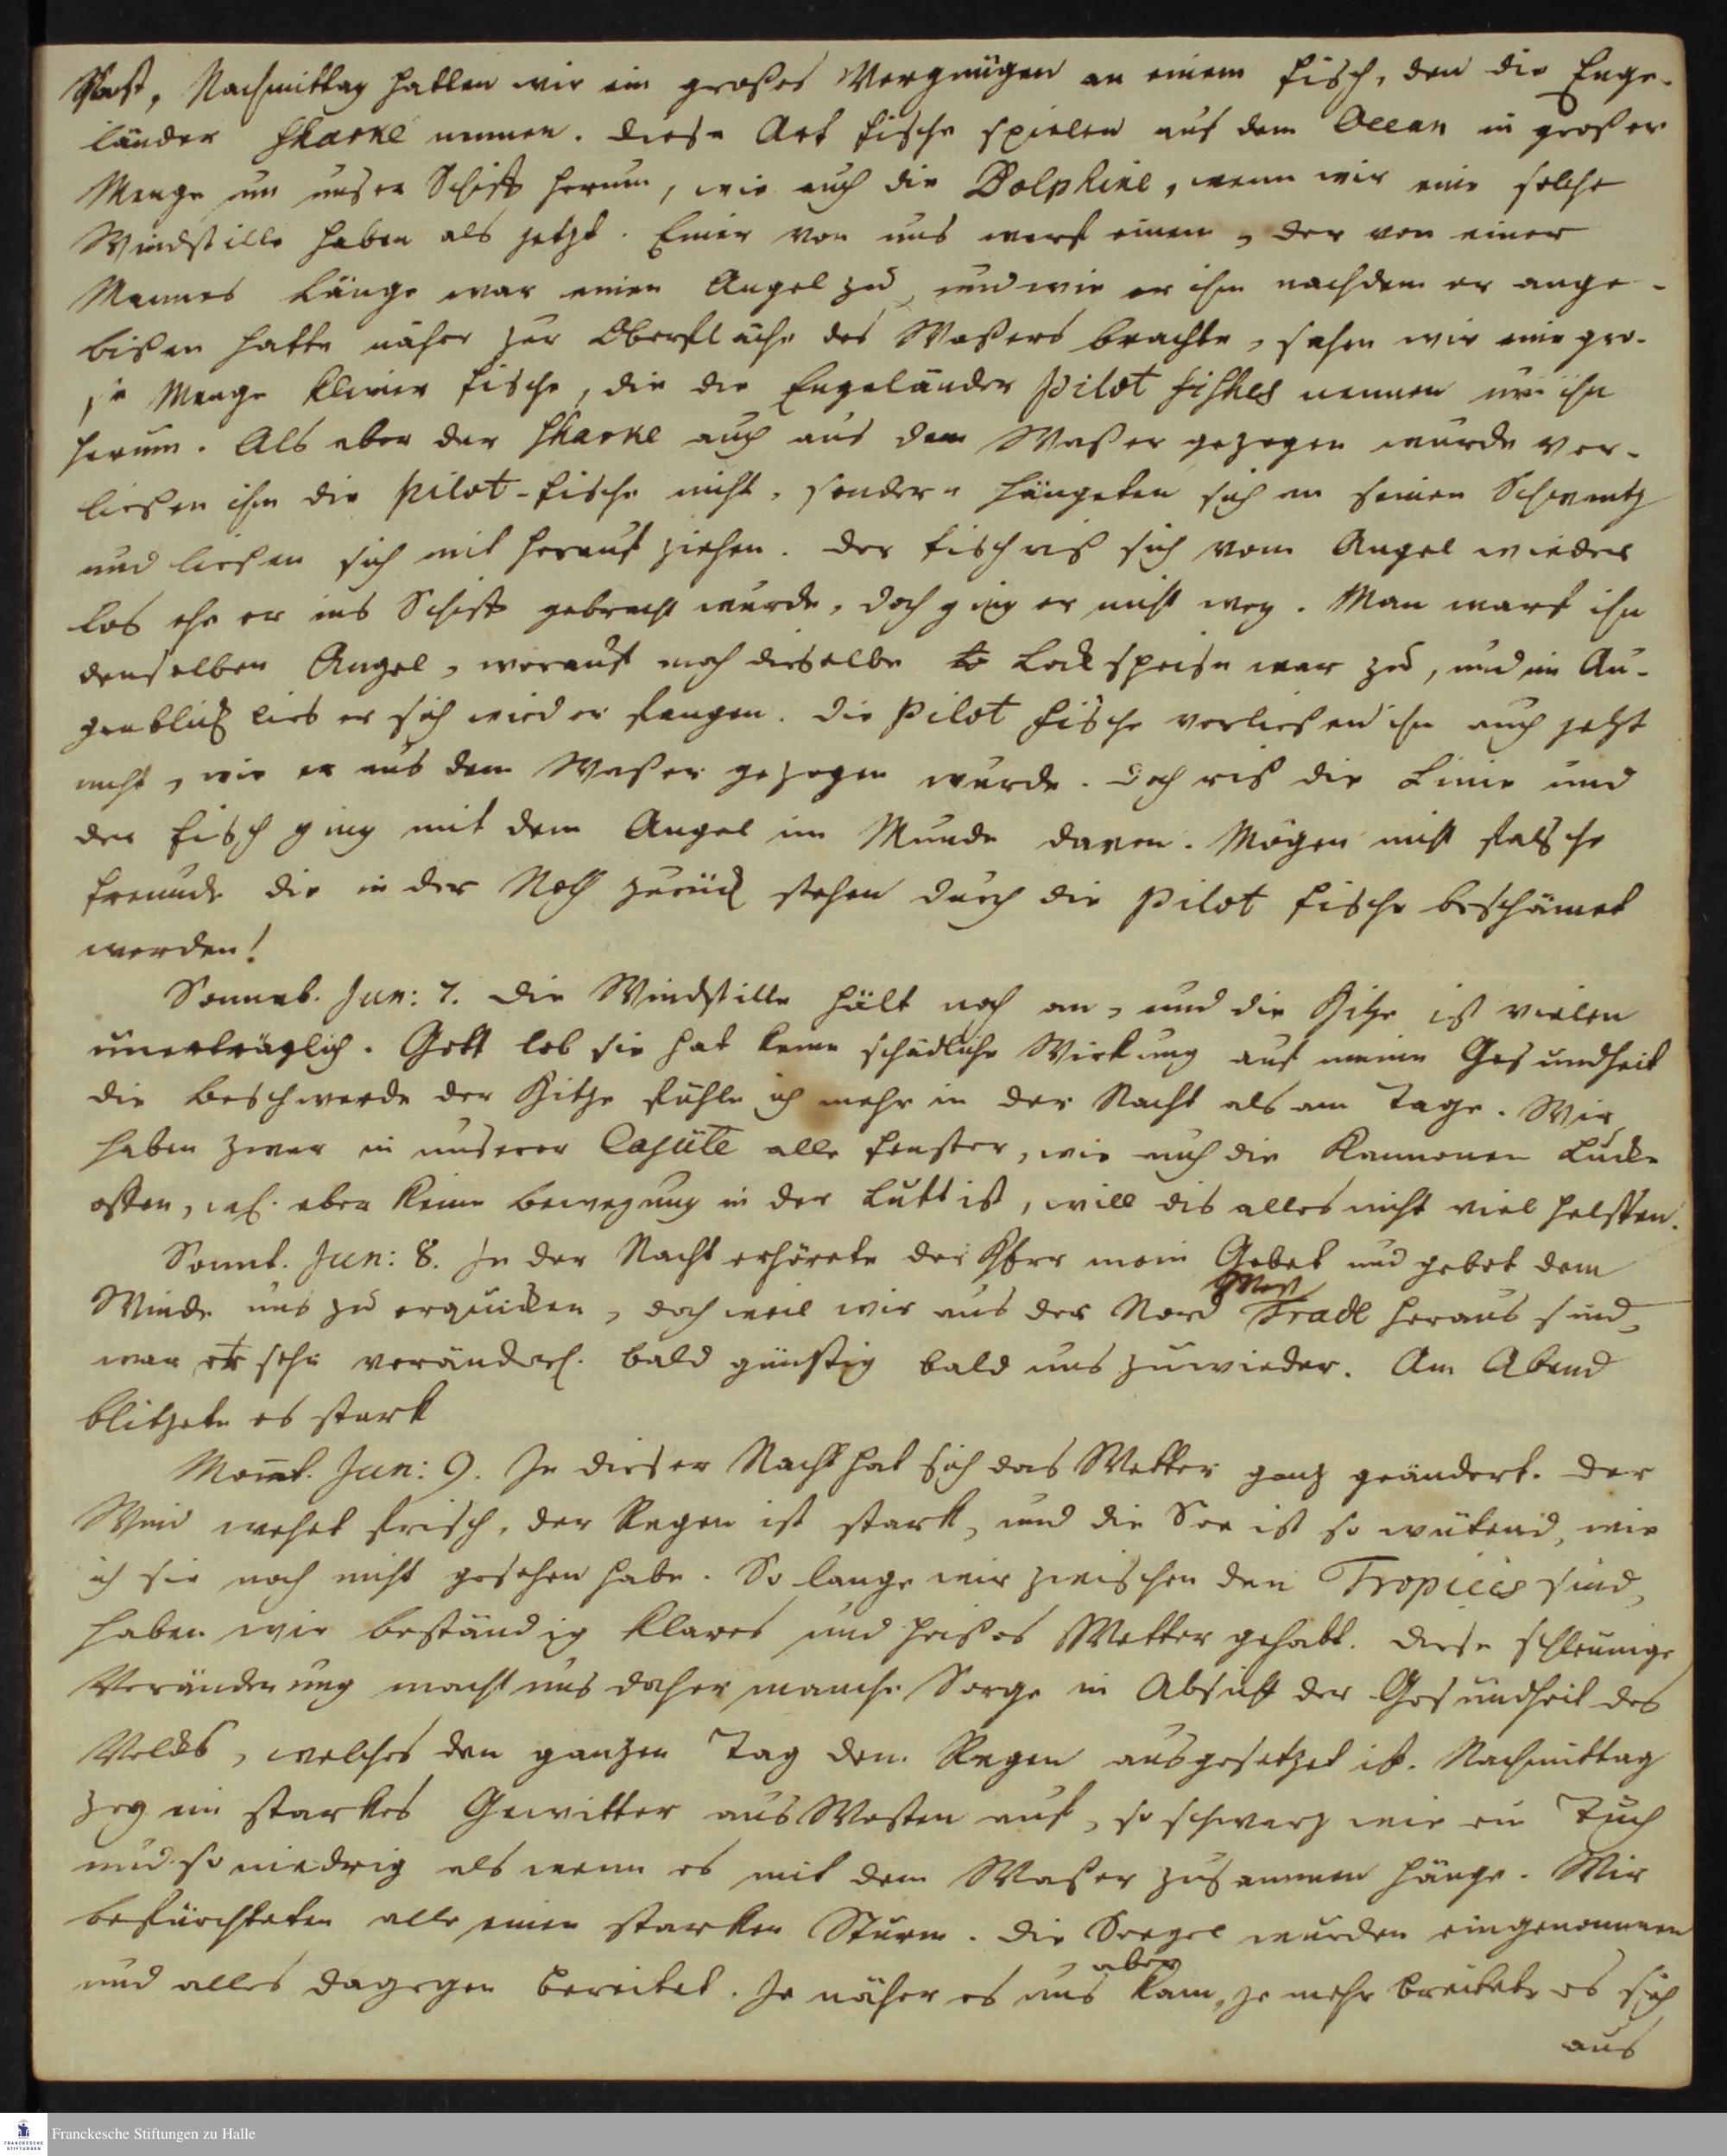 Nachmittag hatten wir ein großes Vergnügen an einem Fisch, den die Enge-
länder Sharke nennen. Diese Art Fische spielen auf dem Ocean in großer
Menge um unser Schiff herum, wie auch die Dolphine, wenn wir eine solche
Windstille haben als jetzt. Einer von uns warf einem, der von einer
Mannes Länge war einen Angel zu, und wie er ihn nachdem er ange-
bißen hatte näher zur Oberfläche des Waßers brachte, sahen wir eine gro-
se Menge kleiner Fische, die die Engeländer Pilot fishes nennen um ihn
herum. Als aber der Sharke auch aus dem Waßer gezogen wurde ver-
ließen ihn die Pilot-Fische nicht, sondern hängeten sich an seinen Schwantz
und ließen sich mit herauf ziehen. Der Fisch riß sich vom Angel wieder
los ehe er ins Schiff gebracht wurde, doch ging er nicht weg. Man warf ihn
denselben Angel, worauf noch dieselbe Lockspeise war zu, und im Au-
genblick lies er sich wieder fangen. Die Pilot Fische verließen ihn auch jetzt
nicht, wie er aus dem Waßer gezogen wurde. Doch riß die Linie und
der Fisch ging mit dem Angel im Munde davon. Mögen nicht falsche
Freunde die in der Noth zurück stehen durch die Pilot Fische beschämet
werden!
Sonnab. Jun: 7. Die Windstille hält noch an, und die Hitze ist vielen
unerträglich. Gott lob sie hat keine schädliche Wirkung auf meine Gesundheit
die Beschwerde der Hitze fühle ich mehr in der Nacht als am Tage. Wir
haben zwar in unserer Cajüte alle Fenster, wie auch die Kannonen Lucke
offen, weil aber keine Bewegung in der Lufft ist, will dis alles nicht viel helffen.
Sonnt. Jun: 8. In der Nacht erhörete der Herr mein Gebet und gebot dem
Winde uns zu erquicken, doch weil wir aus der Nord West Trade heraus sind,
war er sehr veränderl. bald günstig bald uns zuwieder. Am Abend
blitzete es stark
Mont. Jun: 9. In dieser Nacht hat sich das Wetter ganz geändert. Der
Wind wehet frisch, der Regen ist stark, und die See ist so wütend, wie
ich sie noch nicht gesehen habe. So lange wir zwischen den Tropicis sind,
haben wir beständig klares und heißes Wetter gehabt. Diese schleunige
Veränderung macht uns daher manche Sorge in Absicht der Gesundheit des
Volcks, welches den ganzen Tag dem Regen ausgesetzet ist. Nachmittag
zog ein starkes Gewitter aus Westen auf, so schwarz wie ein Tuch
und so niedrig als wenn es mit dem Waßer zusammen hänge. Wir
befürchteten alle einen starken Sturm. Die Seegel wurden eingenommen
und alles dagegen bereitet. Je näher es uns aber kam, je mehr breitete es sich
aus
Franckesche Stiftungen zu Halle